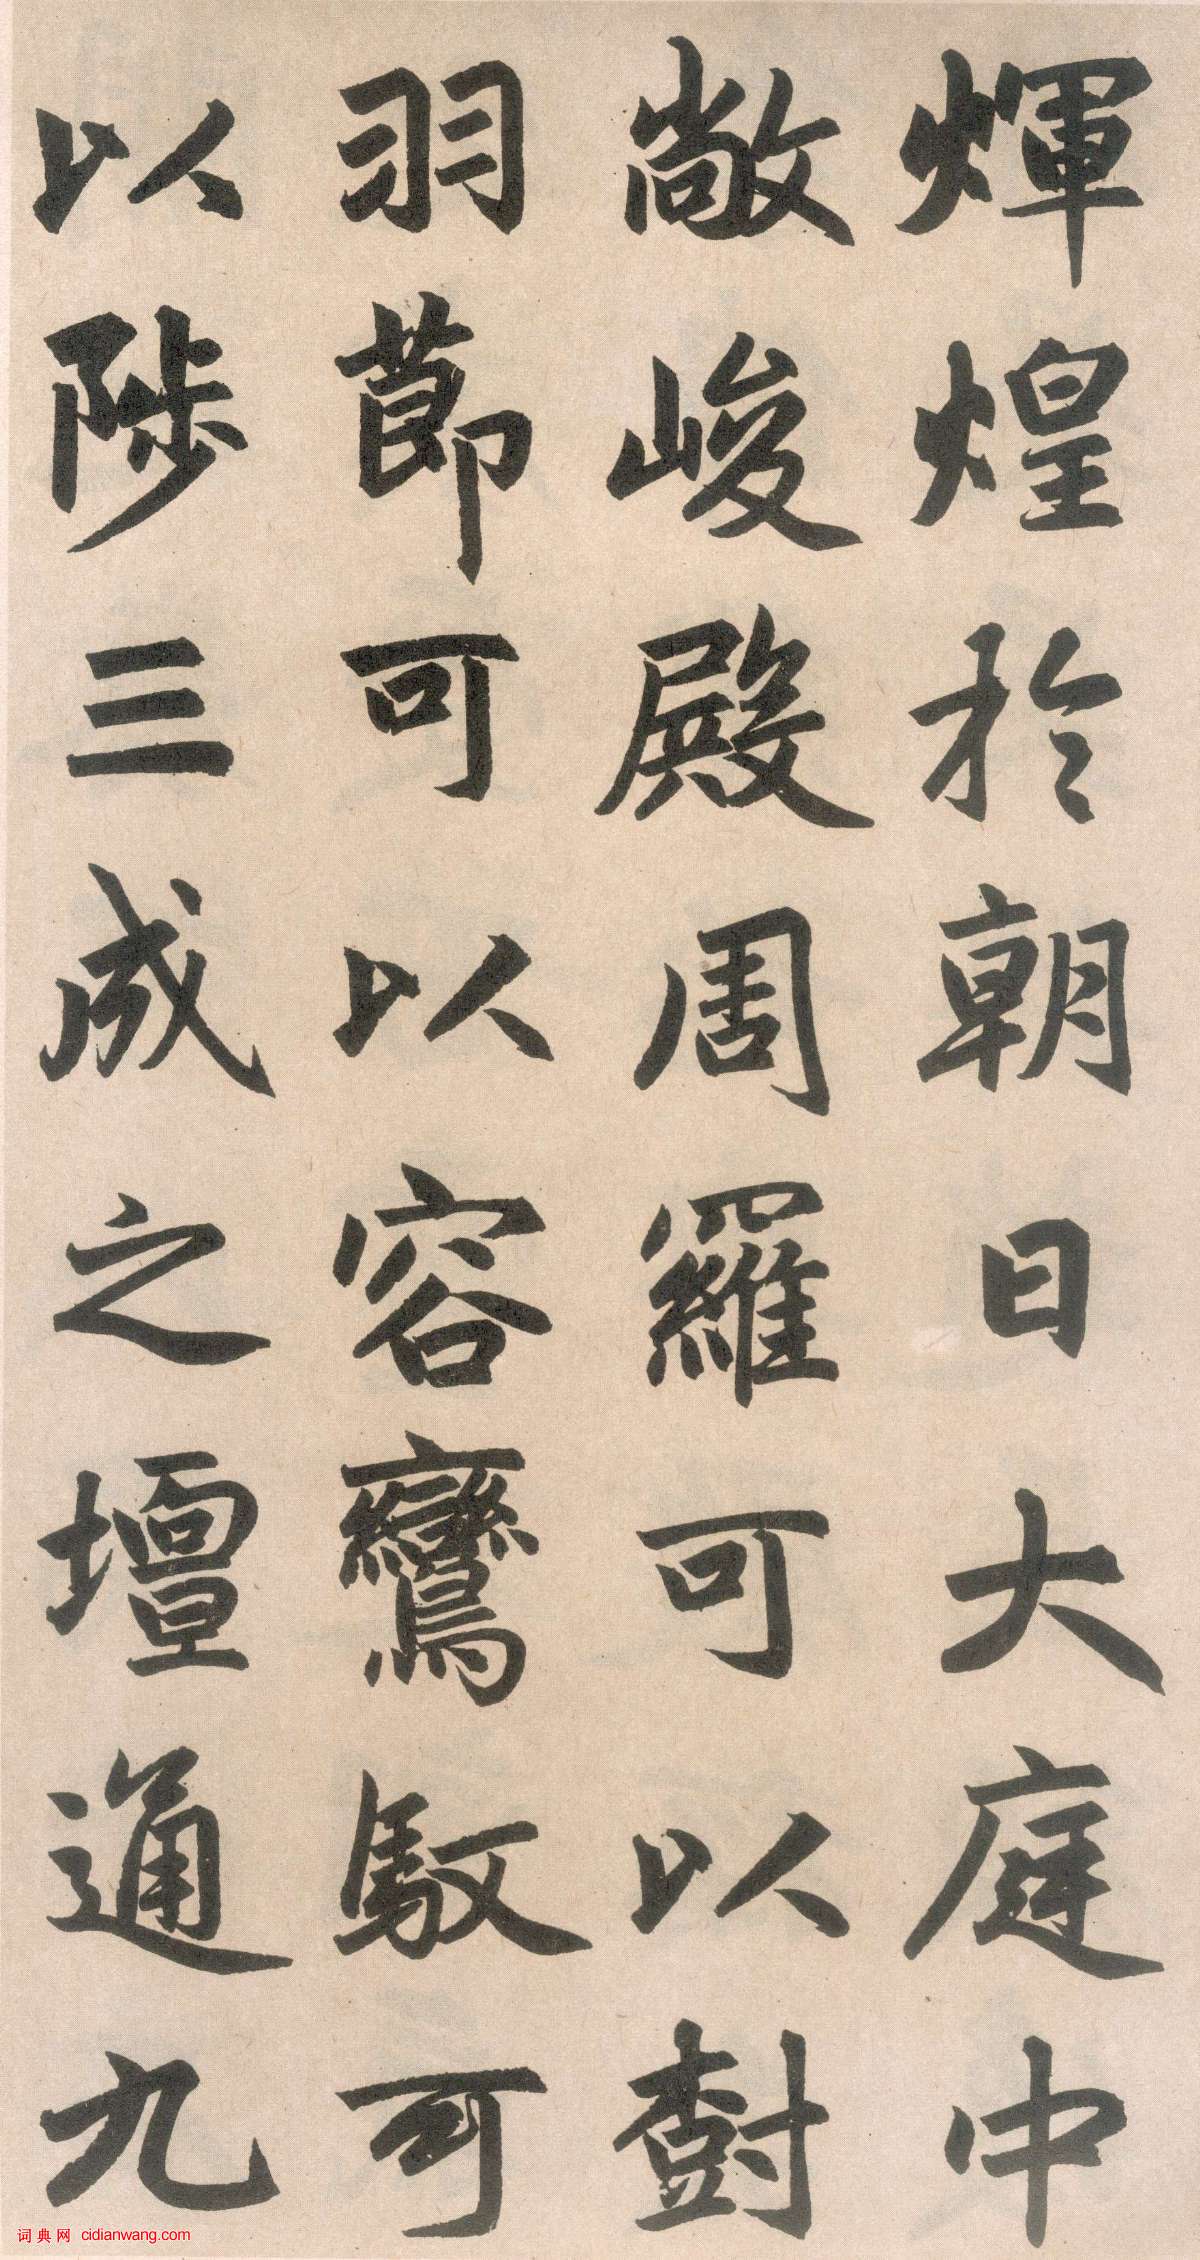 煇煌於朝日大庭中
敞峻殿周羅可以樹
羽節可以容鸞馭可
以陟三成之壇通九
词典网 cidianwang.com